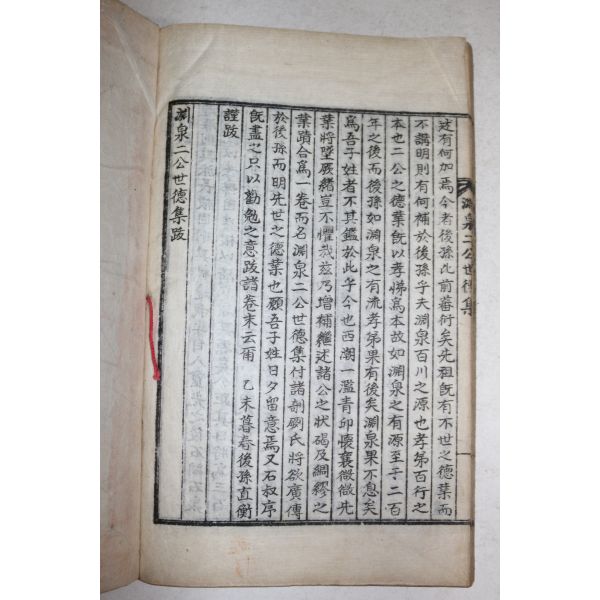 淵泉二公世德集
述有何加焉今者後孫比前蕃衍矣先祖旣有不世之德業而
不講明則有何補於後孫乎夫淵泉百川之源也孝弟百行之
本也二公之德業旣以孝悌爲本故如淵泉之有源至于二百
年之後而後孫如淵泉之有流孝弟果有後矣淵泉果不息矣
爲吾子姓者不其鑑於此乎今也西潮一濫青邱懷襄微微先
業將墜厥緖豈不懼哉玆乃增補繼述諸公之狀碣及綢繆之
蹟合爲一卷而名淵泉二公世德集付諸剞劂氏將欲廣傳
於後孫而明先世之德業也願吾子姓日夕留意焉又石叔序
旣盡之只以勸勉之意跋諸卷末云爾 乙未暮春後孫直衡
謹跋
淵泉二公世德集跋